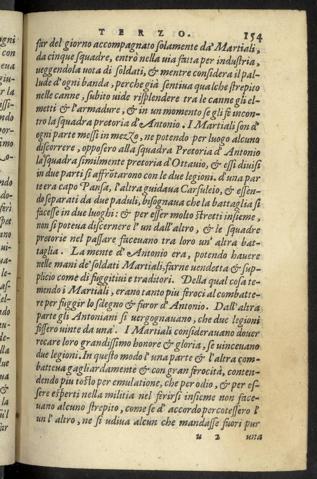 TERZO. 154
fur del giorno accompagnato solamente da' Martiali,
da cinque squadre, entrò nella via fatta per industria,
ueggendola uota di soldati, & mentre considera il pal-
lude d'ogni banda, perche già sentiua qualche strepito
nelle canne, subito uide risplendere tra le canne gli el-
metti & l'armadure, & in un momento se gli fe incon-
tro la squadra pretoria d'Antonio. I Martiali son d'
ogni parte messi in mezo, ne potendo per luogo alcuno
discorrere, opposero alla squadra Pretoria d'Antonio
la squadra similmente pretoria d'Ottauio, & essi diuisi
in due parti si affrōtarono con le due legioni, d'una par
te era capo Pansa, l'altra guidaua Carsuleio, & essen-
do separati da due paduli, bisognaua che la battaglia si
facesse in duo luoghi: & per esser molto stretti insieme,
non si poteua discernere l'un dall'altro, & le squadre
pretorie nel passare faceuano tra loro un'altra bat-
taglia. La mente d'Antonio era, potendo hauere
nelle mani de' soldati Martiali, farne uendetta & sup-
plicio come di fuggitiui e traditori. Della qual cosa te-
mendo i Martiali, erano tanto piu feroci al combatte-
re per fuggir lo sdegno & furor d'Antonio. Dall'altra
parte gli Antoniani si uergognauano, che due legioni
fossero uinte da una. I Martiali considerauano douer
recare loro grandissimo honore & gloria, se uinceuano
due legioni. In questo modo l'una parte & l'altra com-
batteua gagliardamente & con gran ferocità, conten-
dendo piu tosto per emulatione, che per odio, & per es-
sere esperti nella militia nel ferirsi insieme non face-
uano alcuno strepito, come se d'accordo percotessero l'
un l'altro, ne si udiua alcun che mandasse fuori pur
u 2 una